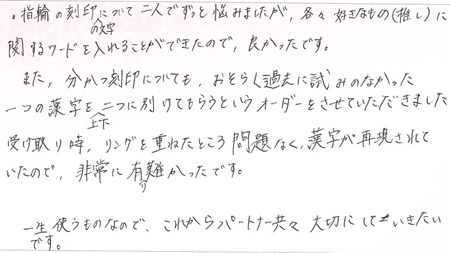 。指輪の刻印について二人でずっと悩みましたが、各々好きなもの(推し)に
の文字
関するワードを入れることができたので、良かったです。
また、分かつ刻印についても、おそらく過去に試みのなかった
一つの漢字を二つに別けてもらうというオーダーをさせていただきました
上下
受け取り時、リングを重ねたところ問題なく、漢字が再現されて
いたので、非常に有難かったです。
り
一生使うものなので、これからパートナー共々大切にしていきたい
です。